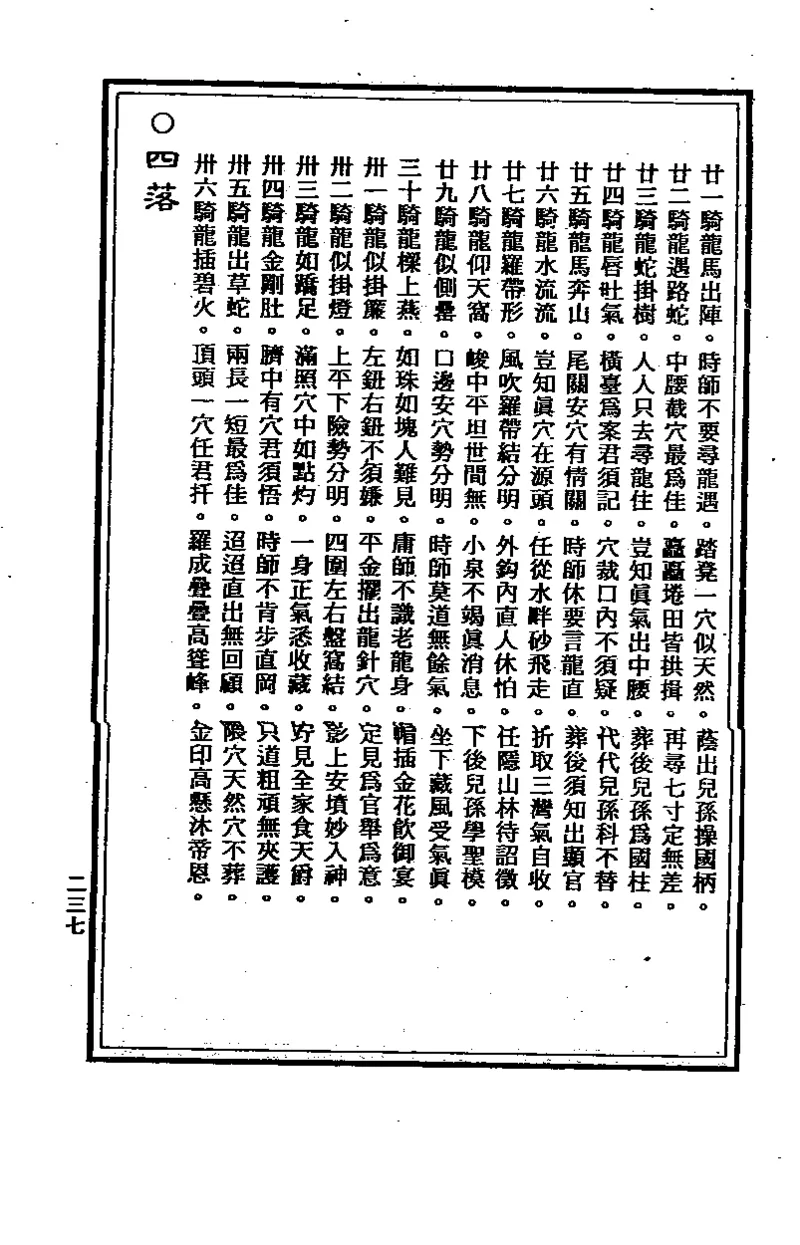 廿一騎龍馬出陣。時師不要尋龍遇。踏凳一穴似天然。蔭出兒孫操國柄。
廿二騎龍遇路蛇。中腰截穴最爲佳。矗矗捲田皆拱揖。再尋七寸定無差。
廿三騎龍蛇掛樹。人人只去尋龍住。豈知眞氣出中腰。葬後兒孫爲國柱。
廿四騎龍唇吐氣。橫臺爲案君須記。穴裁口內不須疑。代代兒孫科不替。
廿五騎龍馬奔山。尾關安穴有情關。時師休要言龍直。葬後須知出顯官。
廿六騎龍水流流。豈知眞穴在源頭。任從水畔砂飛走。折取三灣氣自收。
廿七騎龍羅帶形。風吹羅帶結分明。外鈎內直人休怕。任隱山林待詔徵。
廿八騎龍仰天窩。峻中平坦世間無。小泉不竭眞消息。下後兒孫學聖模。
廿九騎龍似側罍。口邊安穴勢分明。時師莫道無餘氣。坐下藏風受氣眞。
三十騎龍樑上燕。如珠如塊人難見。庸師不識老龍身。帽插金花飲御宴。
卅一騎龍似掛簾。左鈕右鈕不須嫌。平金擺出龍針穴。定見爲官舉爲意。
卅二騎龍似掛燈。上平下險勢分明。四圍左右盤窩結。影上安墳妙入神。
卅三騎龍如蹻足。滿照穴中如點灼。一身正氣悉收藏。竚見全家食天爵。
卅四騎龍金剛肚。臍中有穴君須悟。時師不肯步直岡。只道粗頑無夾護。
卅五騎龍出草蛇。兩長一短最爲佳。迢迢直出無回顧。隈穴天然穴不葬。
卅六騎龍插碧火。頂頭一穴任君扦。羅成疊疊高聳峰。金印高懸沐帝恩。
○四落
二三七